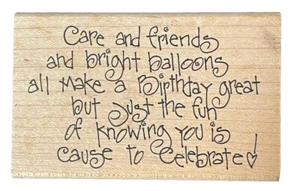 Care and friends
and bright balloons
all make a Birthday great
but just the fun
of knowing you is
cause to celebrate!